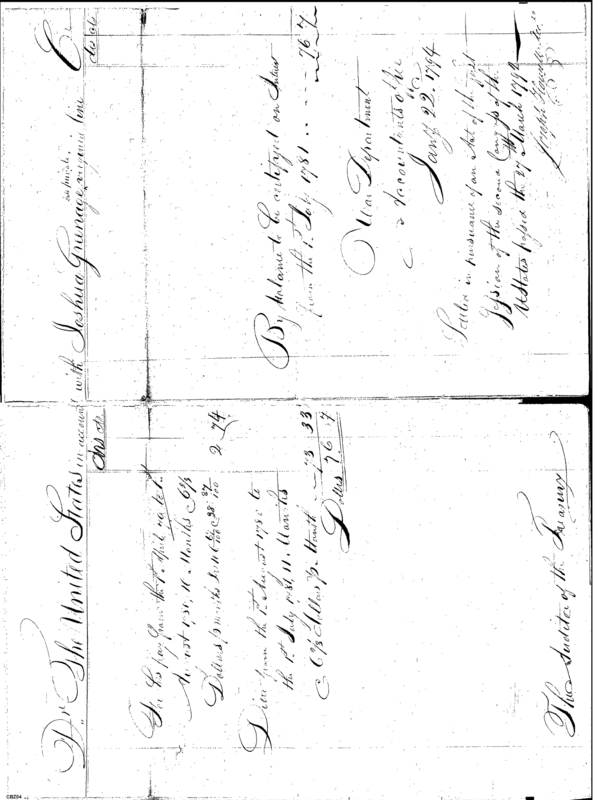 Dr The United States in account with Joshua Grenage, a private Virginia line Cr
Dols Cts
For his pay from the 1st April to 1st
August 1780, Months @ 6 2/3
Dollars p month
2 74
Ditto from the 1st August 1780 to
the 1st July 1781, 11 Months
@ 6 2/3 Dollars p. Month 73 33
Dollars 76 7
The Auditor of the Treasury
By balance to be certified on Interest
from the 1st July 1781 76 7
War Department
Accountants office
Jany 22. 1794
Settled in pursuance of an Act of the first
Session of the second Congress of the
U States passed the 27th March 1792
Joseph Howell
CBZ04